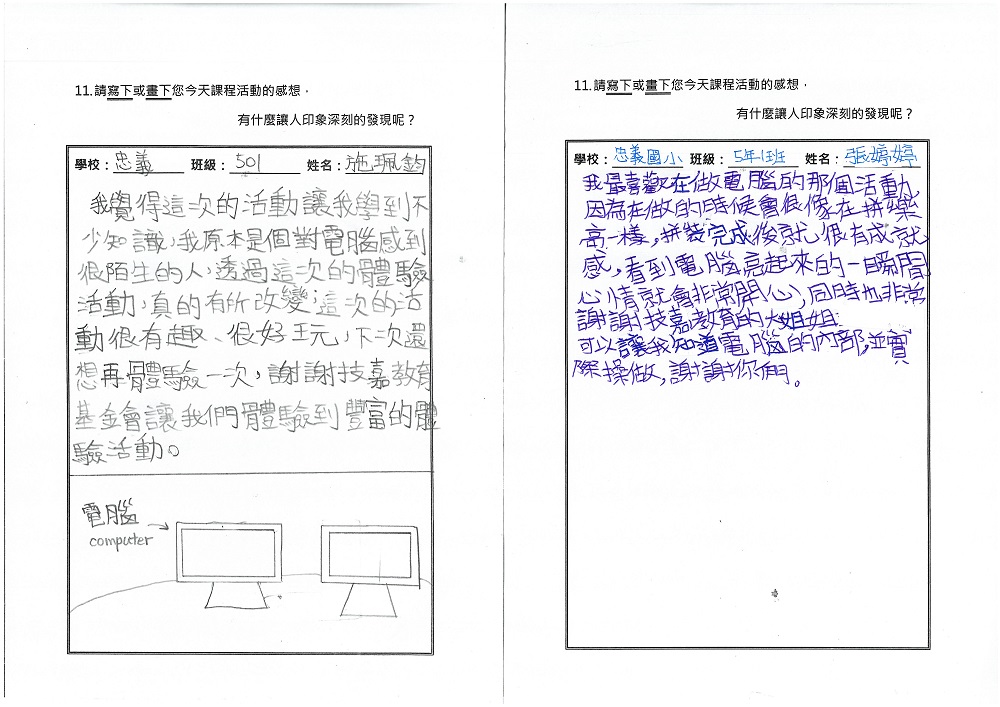 11.請寫下或畫下您今天課程活動的感想，
有什麼讓人印象深刻的發現呢？
學校：忠義 班級：501 姓名：施珮鈞
我覺得這次的活動讓我學到不
少知識，我原本是個對電腦感到
很陌生的人，透過這次的體驗
活動，真的有所改變；這次的活
動很有趣、很好玩，下次還
想再體驗一次，謝謝技嘉教育
基金會讓我們體驗到豐富的體
驗活動。
電腦
computer
11.請寫下或畫下您今天課程活動的感想，
有什麼讓人印象深刻的發現呢？
學校：忠義國小 班級：5年1班 姓名：張婷婷
我最喜歡在做電腦的那個活動，
因為在做的時候會很像在拼樂
高一樣，拼裝完成後就很有成就
感，看到電腦亮起來的一瞬間
心情就會非常開心，同時也非常
謝謝技嘉教育的大姐姐
可以讓我知道電腦的內部，並實
際操做，謝謝你們。